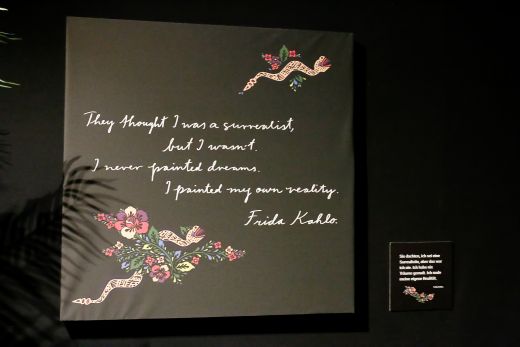 They thought I was a surrealist,
but I wasn't.
I never painted dreams.
I painted my own reality.
Frida Kahlo.
Sie dachten, ich sei eine
Surrealistin, aber das war
ich nie. Ich habe nie
Träume gemalt. Ich male
meine eigene Realität.